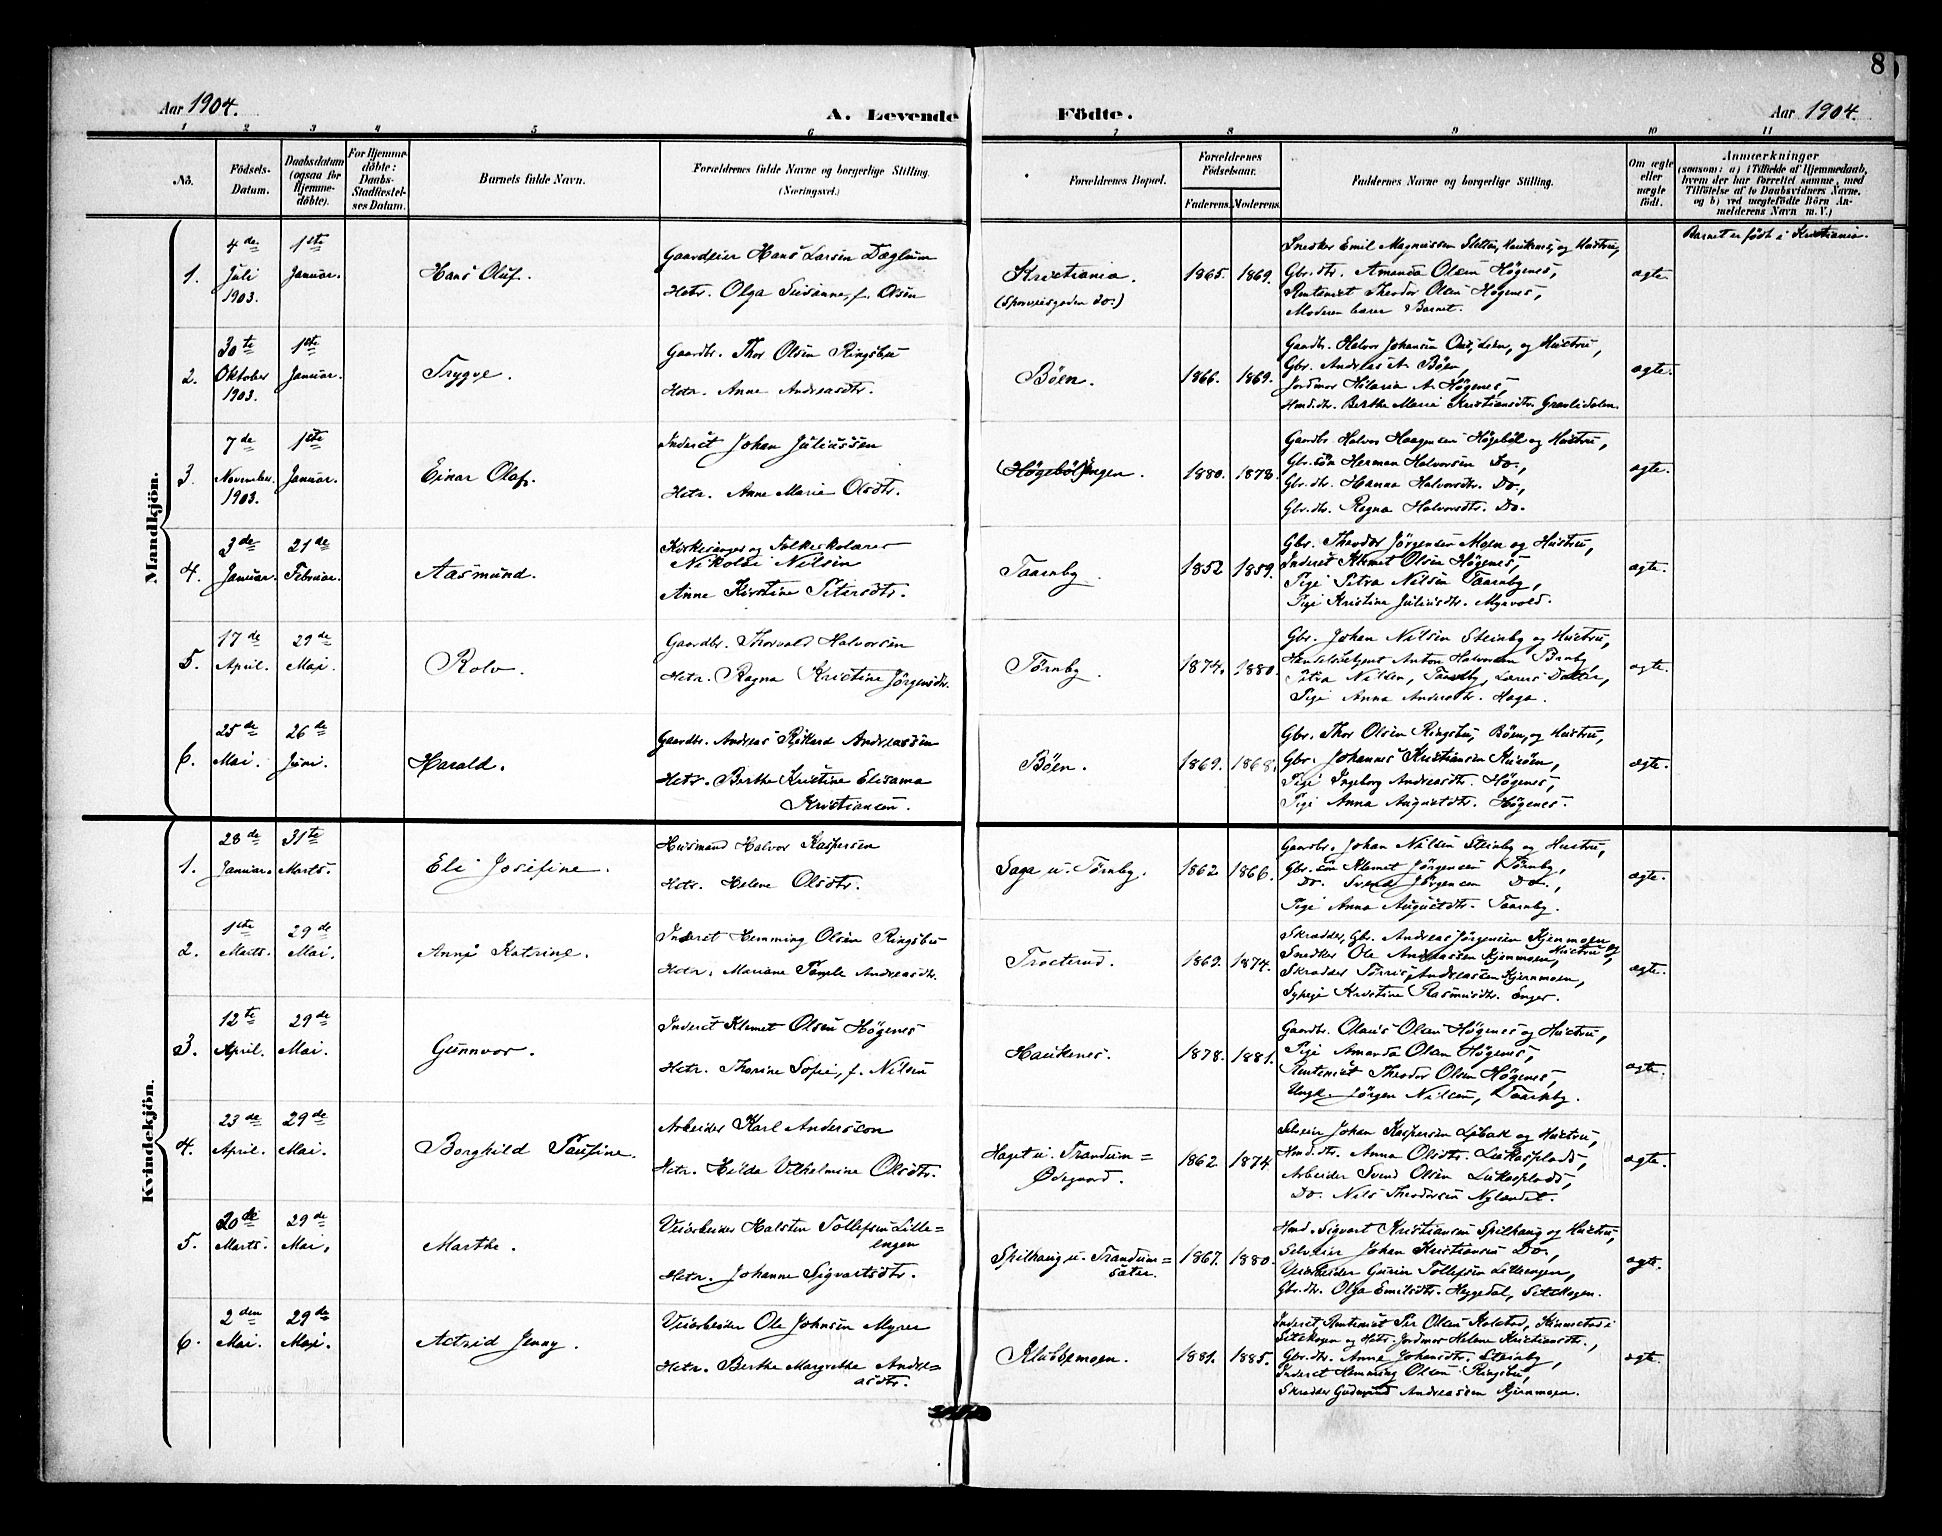 8
Aar 1904.
A. Levende Födte.
Aar 1904.
1 2 3 4 5 6 7 8 9 10 11
No.
Födsels-Datum.
Daabsdatum (ogsaa for Hjemmedöbte).
For Hjemmedöbte: Daabs-Stadfæstelses Datum.
Barnets fulde Navn.
Forældrenes fulde Navne og borgerlige Stilling. (Næringsvei.)
Forældrenes Bopæl.
Forældrenes Födselsaar.
Faderens. Moderens.
Faddernes Navne og borgerlige Stilling.
Om ægte eller uægte födt.
Anmærkninger
(saasom: a) i Tilfælde af Hjemmedaab, hvem der har forrettet samme, med Tilföielse af to Daabsvidners Navne, og b) ved uægtefödte Börn Anmelderens Navn m. V.)
Mandkjön.
1.
4de Juli 1903.
1ste Januar.
Hans Oluf.
Gaardeier Hans Larsen Dæglum
Hstr. Olga Susanne, f. Olsen
Kristiania.
(Sporveisgaden do.)
1865. 1869.
Snedker Emil Magnussen Sletten, Haukenes, og Hustru,
Gbr.dtr. Amanda Olsen Høgenes,
Rentenist Theodor Olsen Høgenes,
Moderen bærer Barnet.
ægte.
Barnet er født i Kristiania.
2.
30te Oktober 1903.
1ste Januar.
Trygve.
Gaardbr. Thor Olsen Ringsbu
Hstr. Anne Andreasdtr.
Böen.
1866. 1869.
Gaardbr. Halvor Johansen Lien, og Hustru,
Gbr. Andreas A. Böen,
Jordmor Hilaria A. Høgenes,
Hmd.dtr. Berthe Marie Kristiansdtr. Gravlidalen.
ægte.
3.
7de November 1903.
1ste Januar.
Einar Olaf.
Inderst Johan Juliussen
Hstr. Anne Marie Olsdtr.
(Høgebøl)engen.
1880. 1878.
Gaardbr. Halvor Haagensen Høgebøl og Hustru,
Gbr.søn Herman Halvorsen Do.,
Gbr.dtr. Hanna Halvorsdtr. Do.,
Gbr.dtr. Ragna Halvorsdtr. Do.
ægte.
4.
3de Januar.
21de Februar.
Aasmund.
Kirkesanger og Folkeskolærer
Nikolai Nilsen
Anne Kirstine Petersdtr.
Taarnby.
1852 1859.
Gbr. Theodor Jørgensen Moen og Hustru,
Inderst Klemet Olsen Høgenes,
Pige Petra Nilsen Taarnby,
Pige Kristine Juliusdtr. Myrvold.
ægte.
5.
17de April.
29de Mai.
Rolv.
Gaardbr. Thorvald Halvorsen
Hstr. Ragna Kristine Jørgensdtr.
Tørnby.
1874. 1880.
Gbr. Johan Nilsen Steinby og Hustru,
Handelsbetjent Anton Halvorsen
Petra Nilsen, Taarnby, Lærers Datter,
Pige Anna Andersdtr. Haga.
ægte.
6.
25de Mai.
26de Juni.
Harald.
Gaardbr. Andreas Rikard Andreassen
Hstr. Berthe Kristine Elisama
Kristiansen.
Böen.
1869. 1868.
Gbr. Thor Olsen Ringsbu, Böen, og Hustru,
Gbr. Johannes Kristiansen
Pige Ingeborg Andreasdtr. Høgenes,
Pige Anna Augustdtr. Høgenes.
ægte.
Kvindekjön.
1.
28de Januar.
31te Marts.
Eli Josefine.
Husmand Halvor Kaspersen
Hstr. Helene Olsdtr.
Saga u. Tørnby.
1862 1866.
Gaardbr. Johan Nilsen Steinby og Hustru,
Gbr.søn Klemet Jørgensen Tørnby,
Do. Svend Jørgensen Do.,
Pige Anna Augustdtr. Taarnby.
ægte.
2.
1ste Marts.
29de Mai.
Anna Katrine.
Inderst Hemming Olsen Ringsbu
Hstr. Mariane Andreasdtr.
Trosterud.
1869. 1874.
Skrædder, Gbr. Andreas Jørgensen Kjernmoen og Hustru,
Snedker Ole Andreassen Kjernmoen,
Skrædder Torris Andreassen Kjernmoen,
Sypige Kristine Rasmusdtr. Enger.
ægte.
3.
12te April.
29de Mai.
Gunnvor.
Inderst Klemet Olsen Høgenes
Hstr. Thorine Sofie, f. Nilsen
Haukenes.
1878. 1881.
Gaardbr. Olaus Olsen Høgenes og Hustru,
Pige Amanda Olsen Høgenes,
Rentenist Theodor Olsen Høgenes,
Ungk. Jørgen Nilsen, Taarnby.
ægte.
4.
23de April.
29de Mai.
Borghild Paufine.
Arbeider Karl Andersson
Hstr. Hilda Vilhelmine Olsdtr.
Haget u. Trandum=
Ødegaard.
1862. 1874
Selveier Johan Kaspersen og Hustru,
Hmd.dtr. Anna Olsdtr. Lukasplads,
Arbeider Svend Olsen Lukasplads,
Do. Nils Theodorsen Nylandet.
ægte.
5.
20de Marts.
29de Mai.
Marthe.
Veiarbeider Halsten Tollefsen Lille=
engen
Hstr. Johanne Sigvartsdtr.
Spilhaug u. Trandum=
sæter.
1867. 1880.
Hmd. Sigvart Kristiansen Spilhaug og Hustru,
Selveier Johan Kristiansen Do.,
Veiarbeider Tollefsen Lilleengen,
Gbr.dtr. Olga Emilsdtr. Heggedal, Setskogen.
ægte.
6.
2den Mai.
29de Mai.
Astrid Jenny.
Veiarbeider Ole Johnsen Myrer
Hstr. Berthe Margrethe Andre=
asdtr.
Klubbemoen.
1881. 1885.
Inderst, Rentenist Per Olsen Kolstad,
Setskogen og Hstr. Jordmor Helene Kristiansdtr.,
Gbr.dtr. Anne Johansdtr. Steinby,
Inderst Hemming Olsen Ringsbu,
Skrædder Gudmund Andreassen Kjernmoen.
ægte.